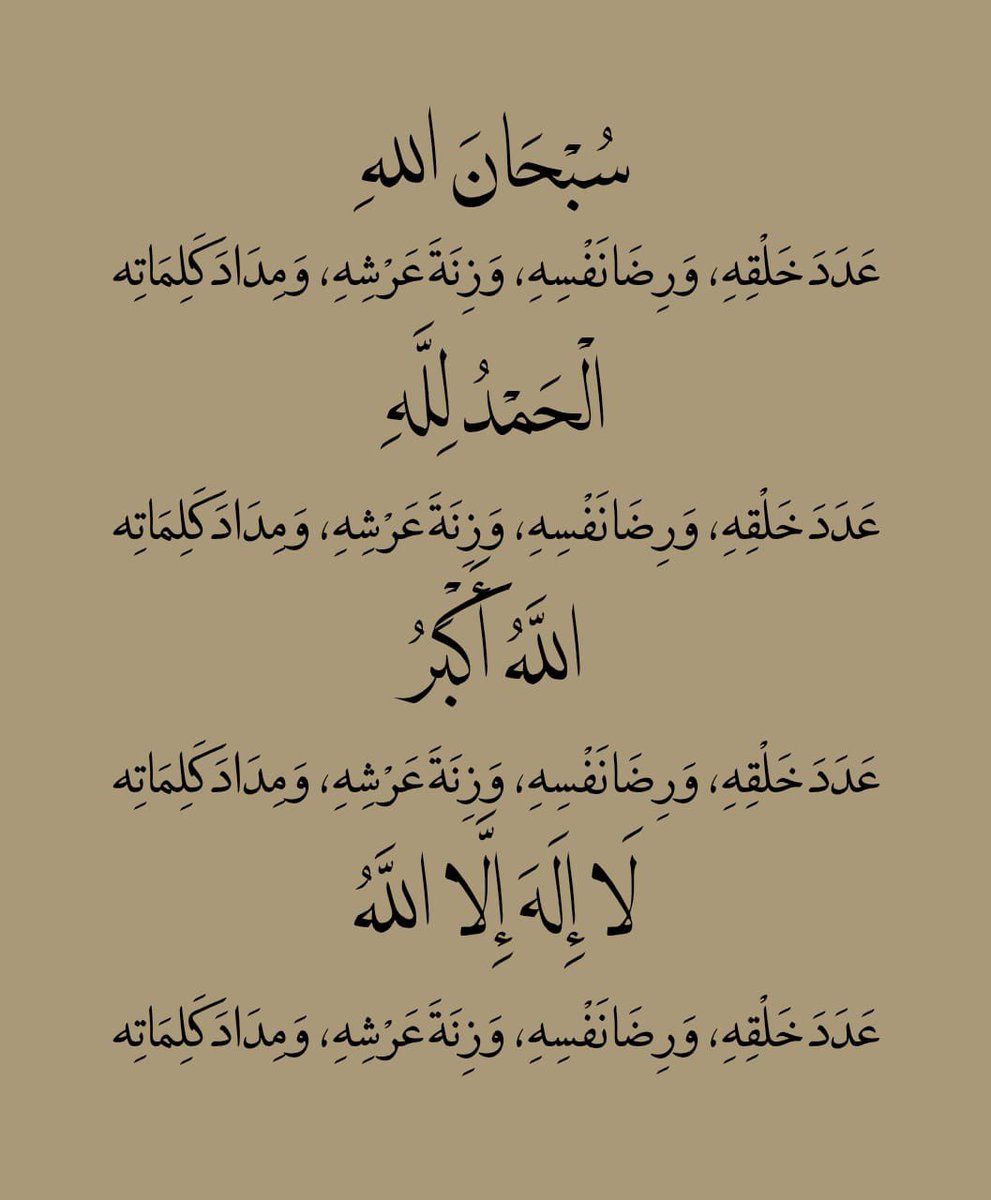 سُبْحَانَ اللهِ
عَدَدَ خَلْقِهِ، وَرِضَا نَفْسِهِ، وَزِنَةَ عَرْشِهِ، وَمِدَادَ كَلِمَاتِه
الْحَمْدُ لِلَّهِ
عَدَدَ خَلْقِهِ، وَرِضَا نَفْسِهِ، وَزِنَةَ عَرْشِهِ، وَمِدَادَ كَلِمَاتِه
اللَّهُ أَكْبَرُ
عَدَدَ خَلْقِهِ، وَرِضَا نَفْسِهِ، وَزِنَةَ عَرْشِهِ، وَمِدَادَ كَلِمَاتِه
لَا إِلَهَ إِلَّا اللَّهُ
عَدَدَ خَلْقِهِ، وَرِضَا نَفْسِهِ، وَزِنَةَ عَرْشِهِ، وَمِدَادَ كَلِمَاتِه